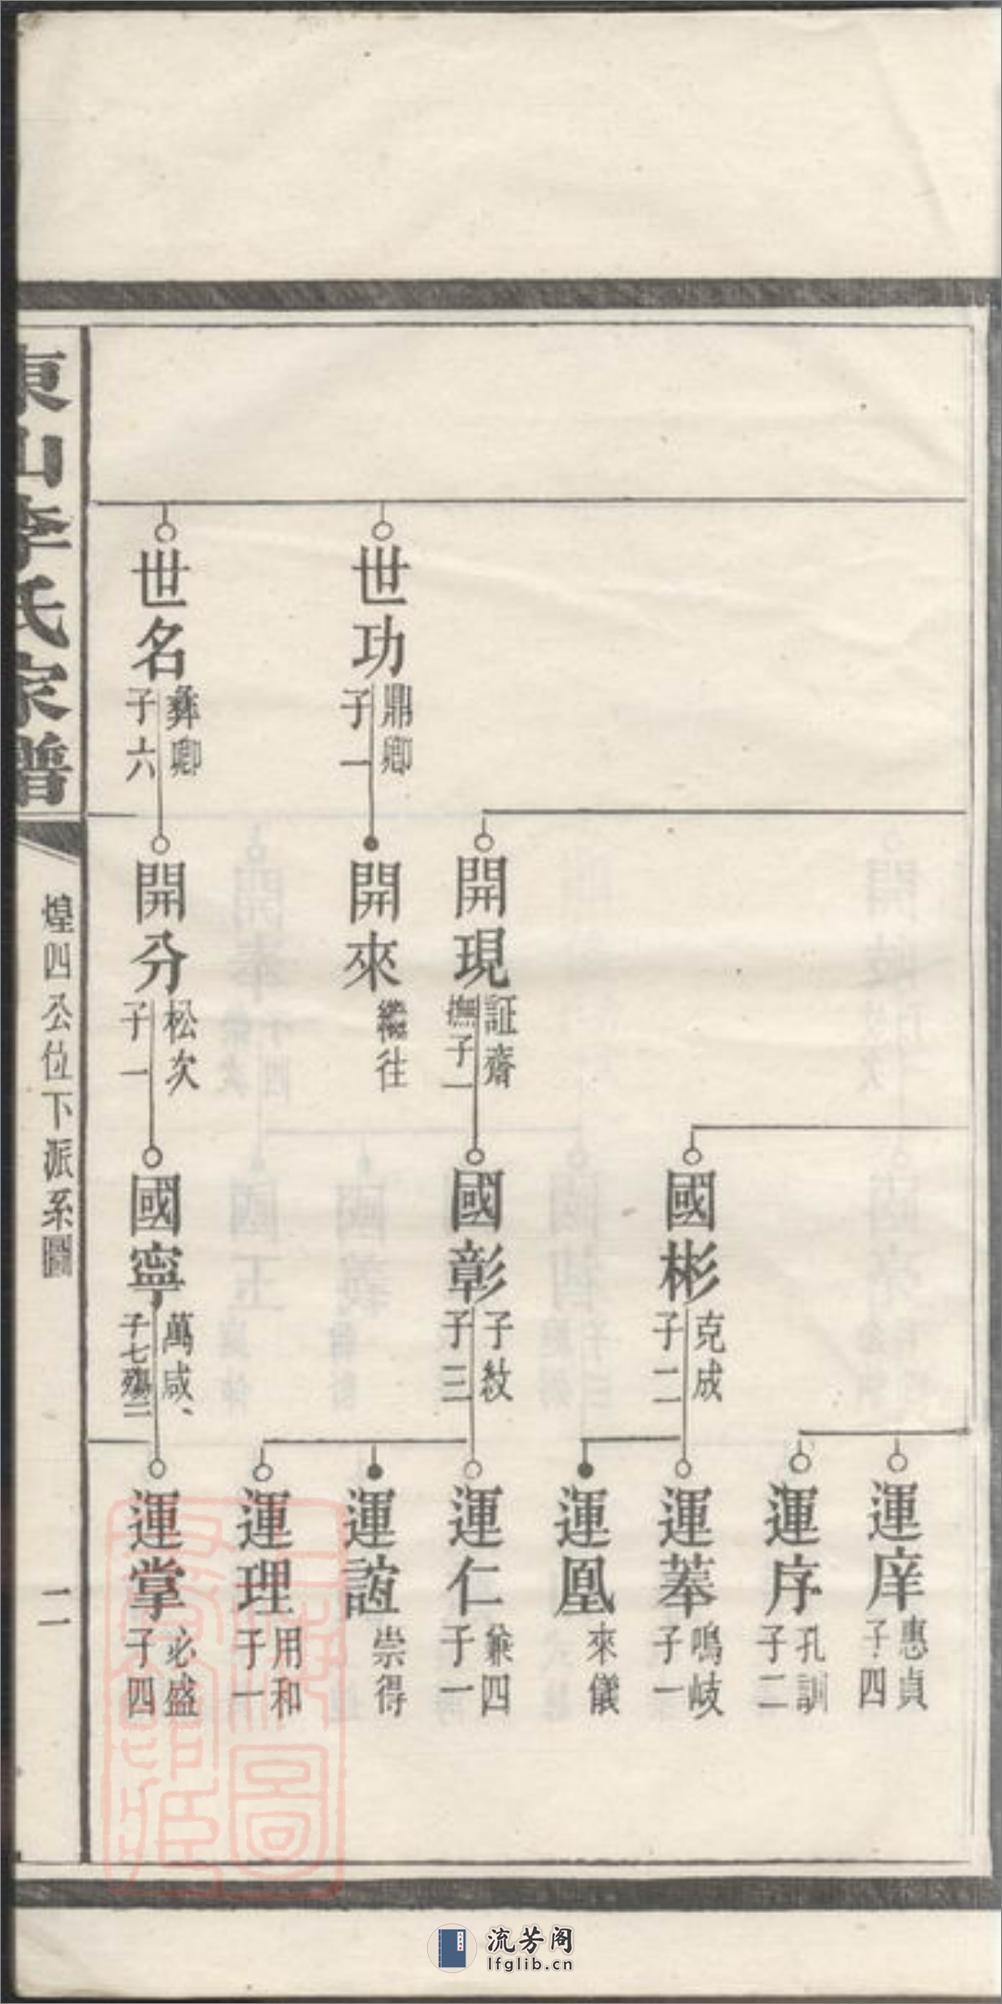 世功
鼎卿
子一
世名
彝卿
子六
開現
証齋
撫子一
開來
繼往
開分
松次
子一
國彬
克成
子二
國彰
子紋
子三
國寧
萬咸、
子七殤三
運庠
惠貞
子四
運序
孔訓
子二
運
鳴岐
子一
運凰
來儀
運仁
兼四
子一
運誼
崇得
運理
用和
子一
運掌
必盛
子四
東山李氏家譜
煌四公位下派系圖
二
上海圖書館藏
流芳阁
lfglib.cn